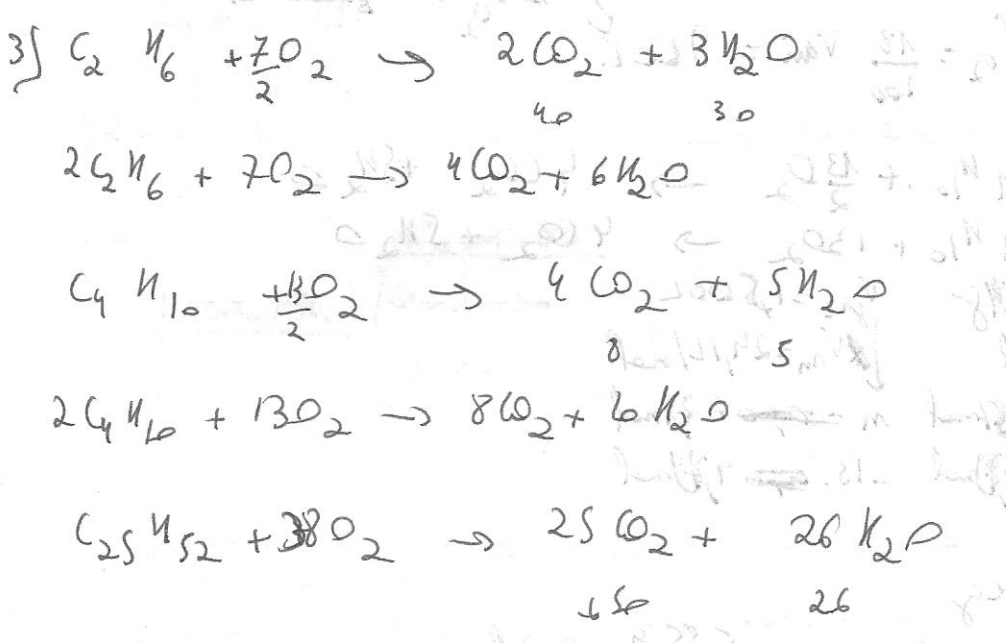 3) C₂H₆ + 7/2 O₂ → 2CO₂ + 3H₂O
4O 3O
2C₂H₆ + 7O₂ → 4CO₂ + 6H₂O
C₄H₁₀ + 13/2 O₂ → 4CO₂ + 5H₂O
8 5
2C₄H₁₀ + 13O₂ → 8CO₂ + 10H₂O
C₂₅H₅₂ + 38O₂ → 25CO₂ + 26H₂O
50 26